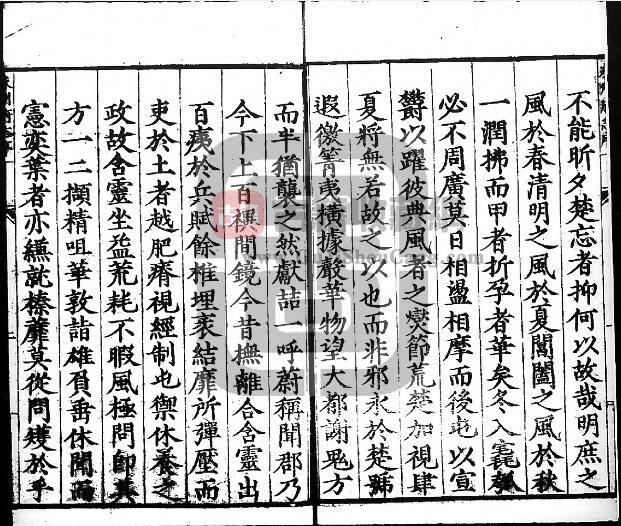 不能昕夕楚忘者抑何以故哉明庶之
風於春清明之風於夏閶闔之風於秋
一潤拂而甲者折孕者華矣冬入
必不周廣莫日相盪相摩而後屯以宣
欝以躍彼典風者之爕節荒楚加視肆
夏將無若故之以也而非邪永於楚號
遐徼箐夷橫據聲華物望大都謝
而半猶襲之然獻詰一呼蔚稱聞郡乃
今下上百禩間鏡今昔撫離合含靈出
百痍於兵賦餘椎埋裹結靡所彈壓而
吏於土者越肥瘠視經制也禦休養之
政故含靈坐益荒耗不暇風極問卽其
方一二擷精咀華敦詣雄負垂休聞而
憲奕葉者亦繅就榛蘼莫從問矱於乎